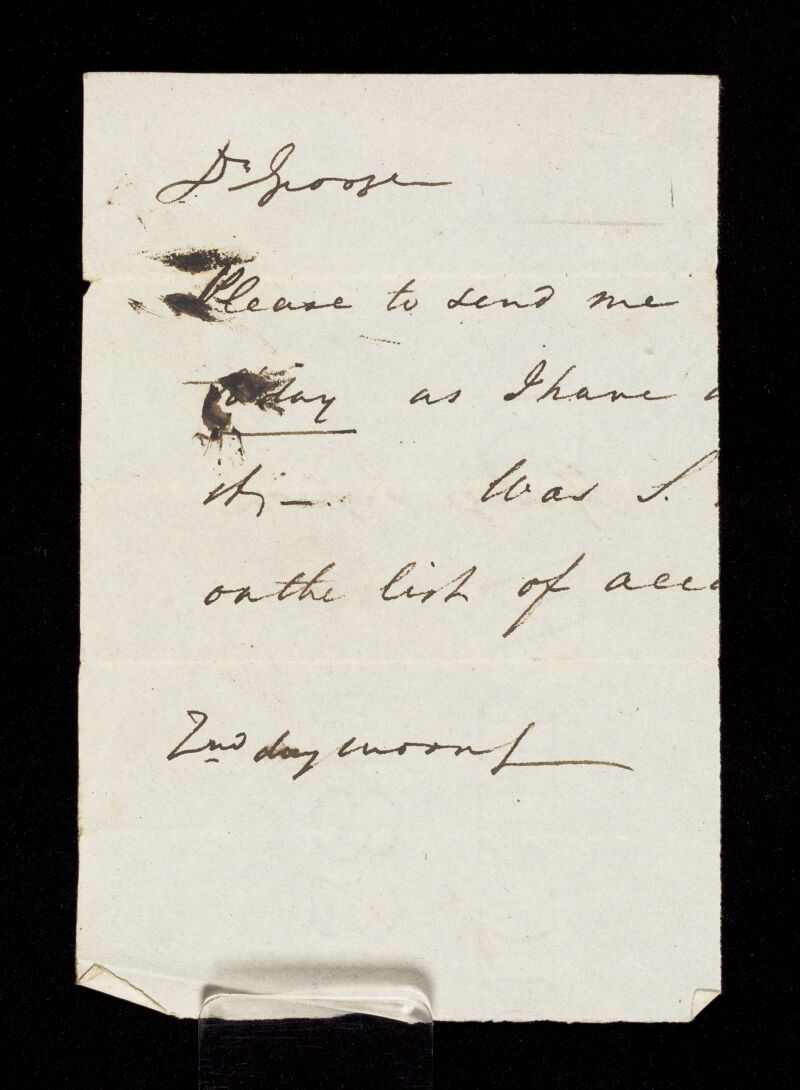 Dr George
Please to send me
today as I have a
it; —. Was S.
on the list of acco
2nd day morng